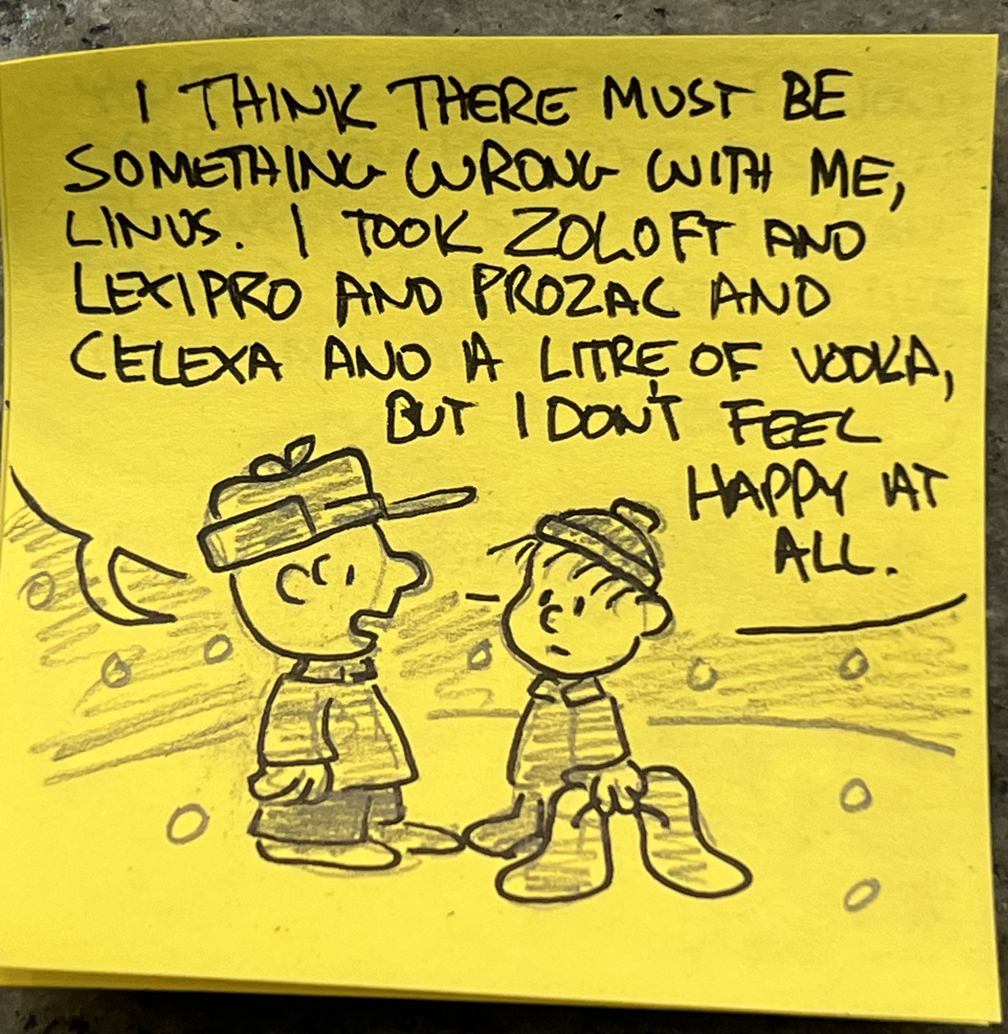 I THINK THERE MUST BE
SOMETHING WRONG WITH ME,
LINUS. I TOOK ZOLOFT AND
LEXIPRO AND PROZAC AND
CELEXA AND A LITRE OF VODKA,
BUT I DON'T FEEL
HAPPY AT
ALL.